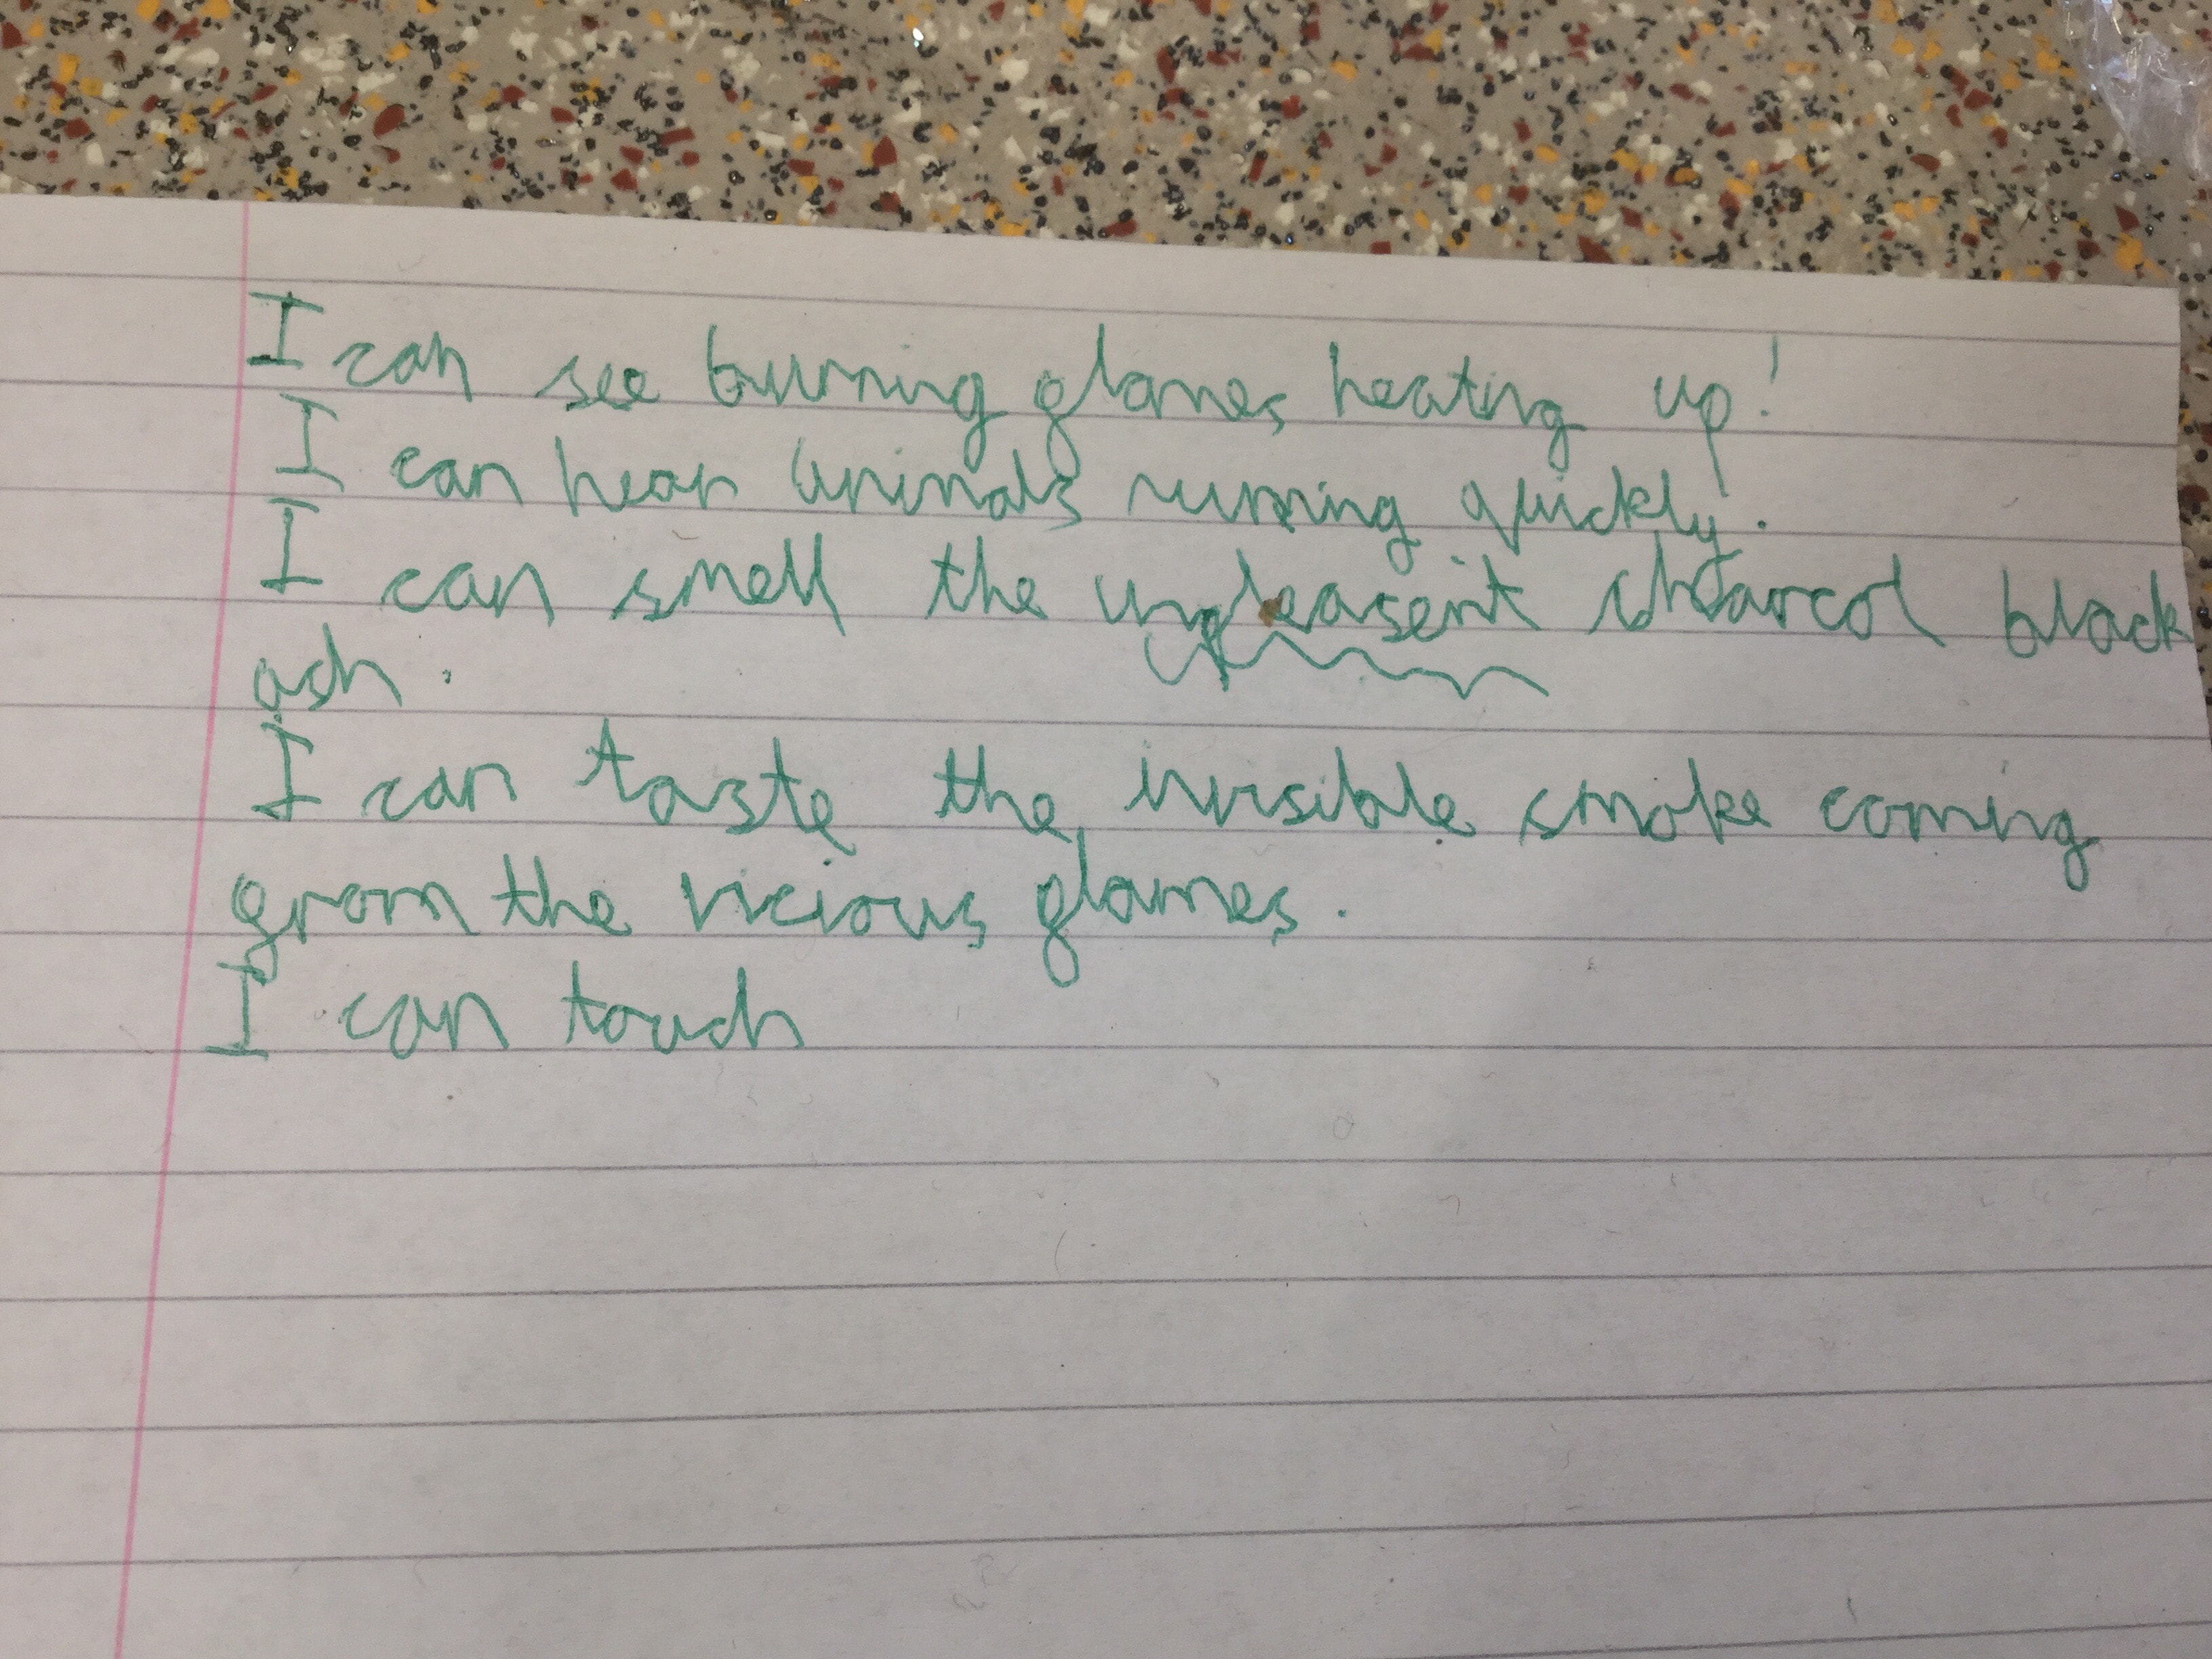 I can see burning flames heating up!
I can hear animals running quickly.
I can smell the unpleasent charcol black
ash.
I can taste the invisible smoke coming
from the vicious flames.
I can touch